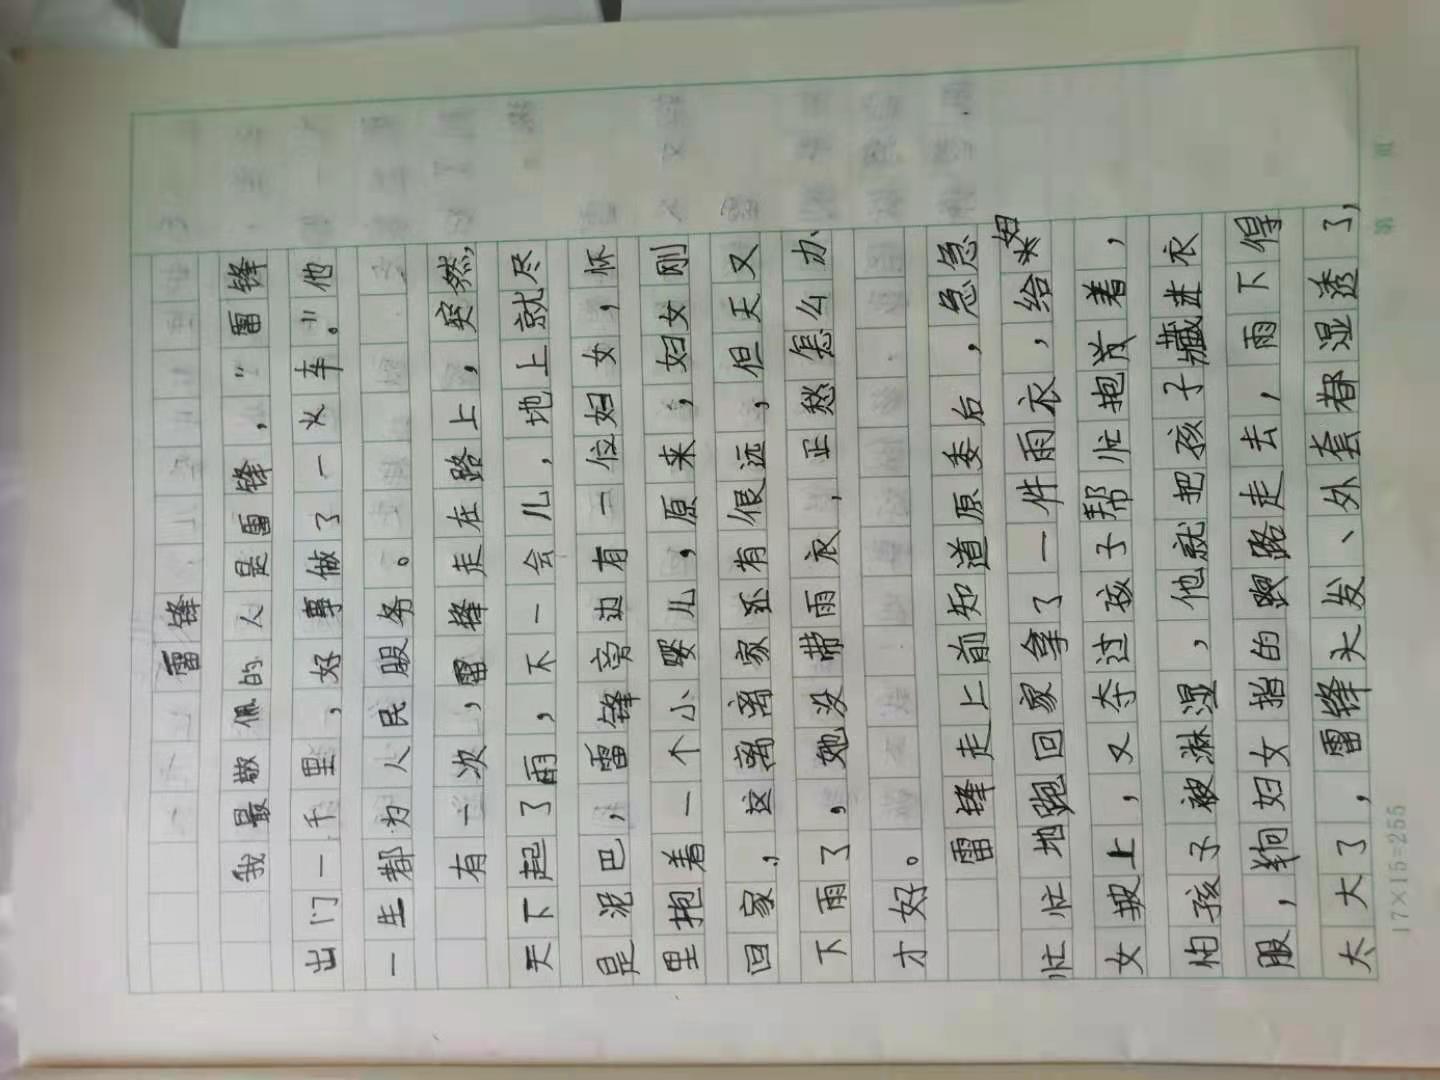 雷锋
我最敬佩的人是雷锋，“雷锋
出门一千里，好事做了一火车。”他
一生都为人民服务。
有一次，雷锋走在路上，突然，
天下起了雨，不一会儿，地上就尽
是泥巴，雷锋旁边有一位妇女，怀
里抱着一个小婴儿，原来，妇女刚
回家，这离离家还有很远，但天又
下雨了，她没带雨衣，正愁怎么办
才好。
雷锋走上前知道原委后，急急
忙忙地跑回家拿了一件雨衣，给妇
女披上，又夺过孩子帮忙抱着，
怕孩子被淋湿，他就把孩子藏进衣
服，朝妇女指的路走去，雨下得
太大了，雷锋头发、外套都湿透了，
17×15=255
第 页